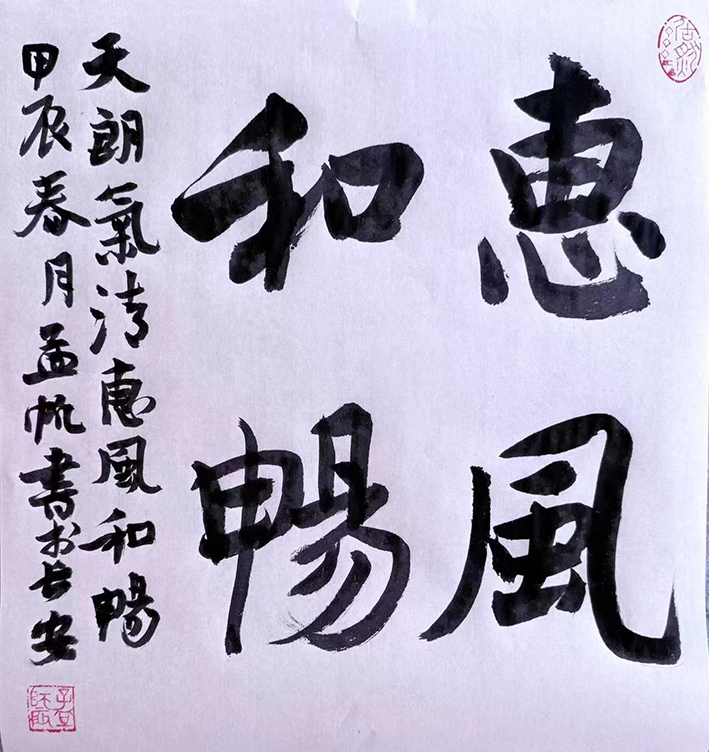 惠風
和暢
天朗氣清惠風和暢
甲辰春月孟帆書於長安